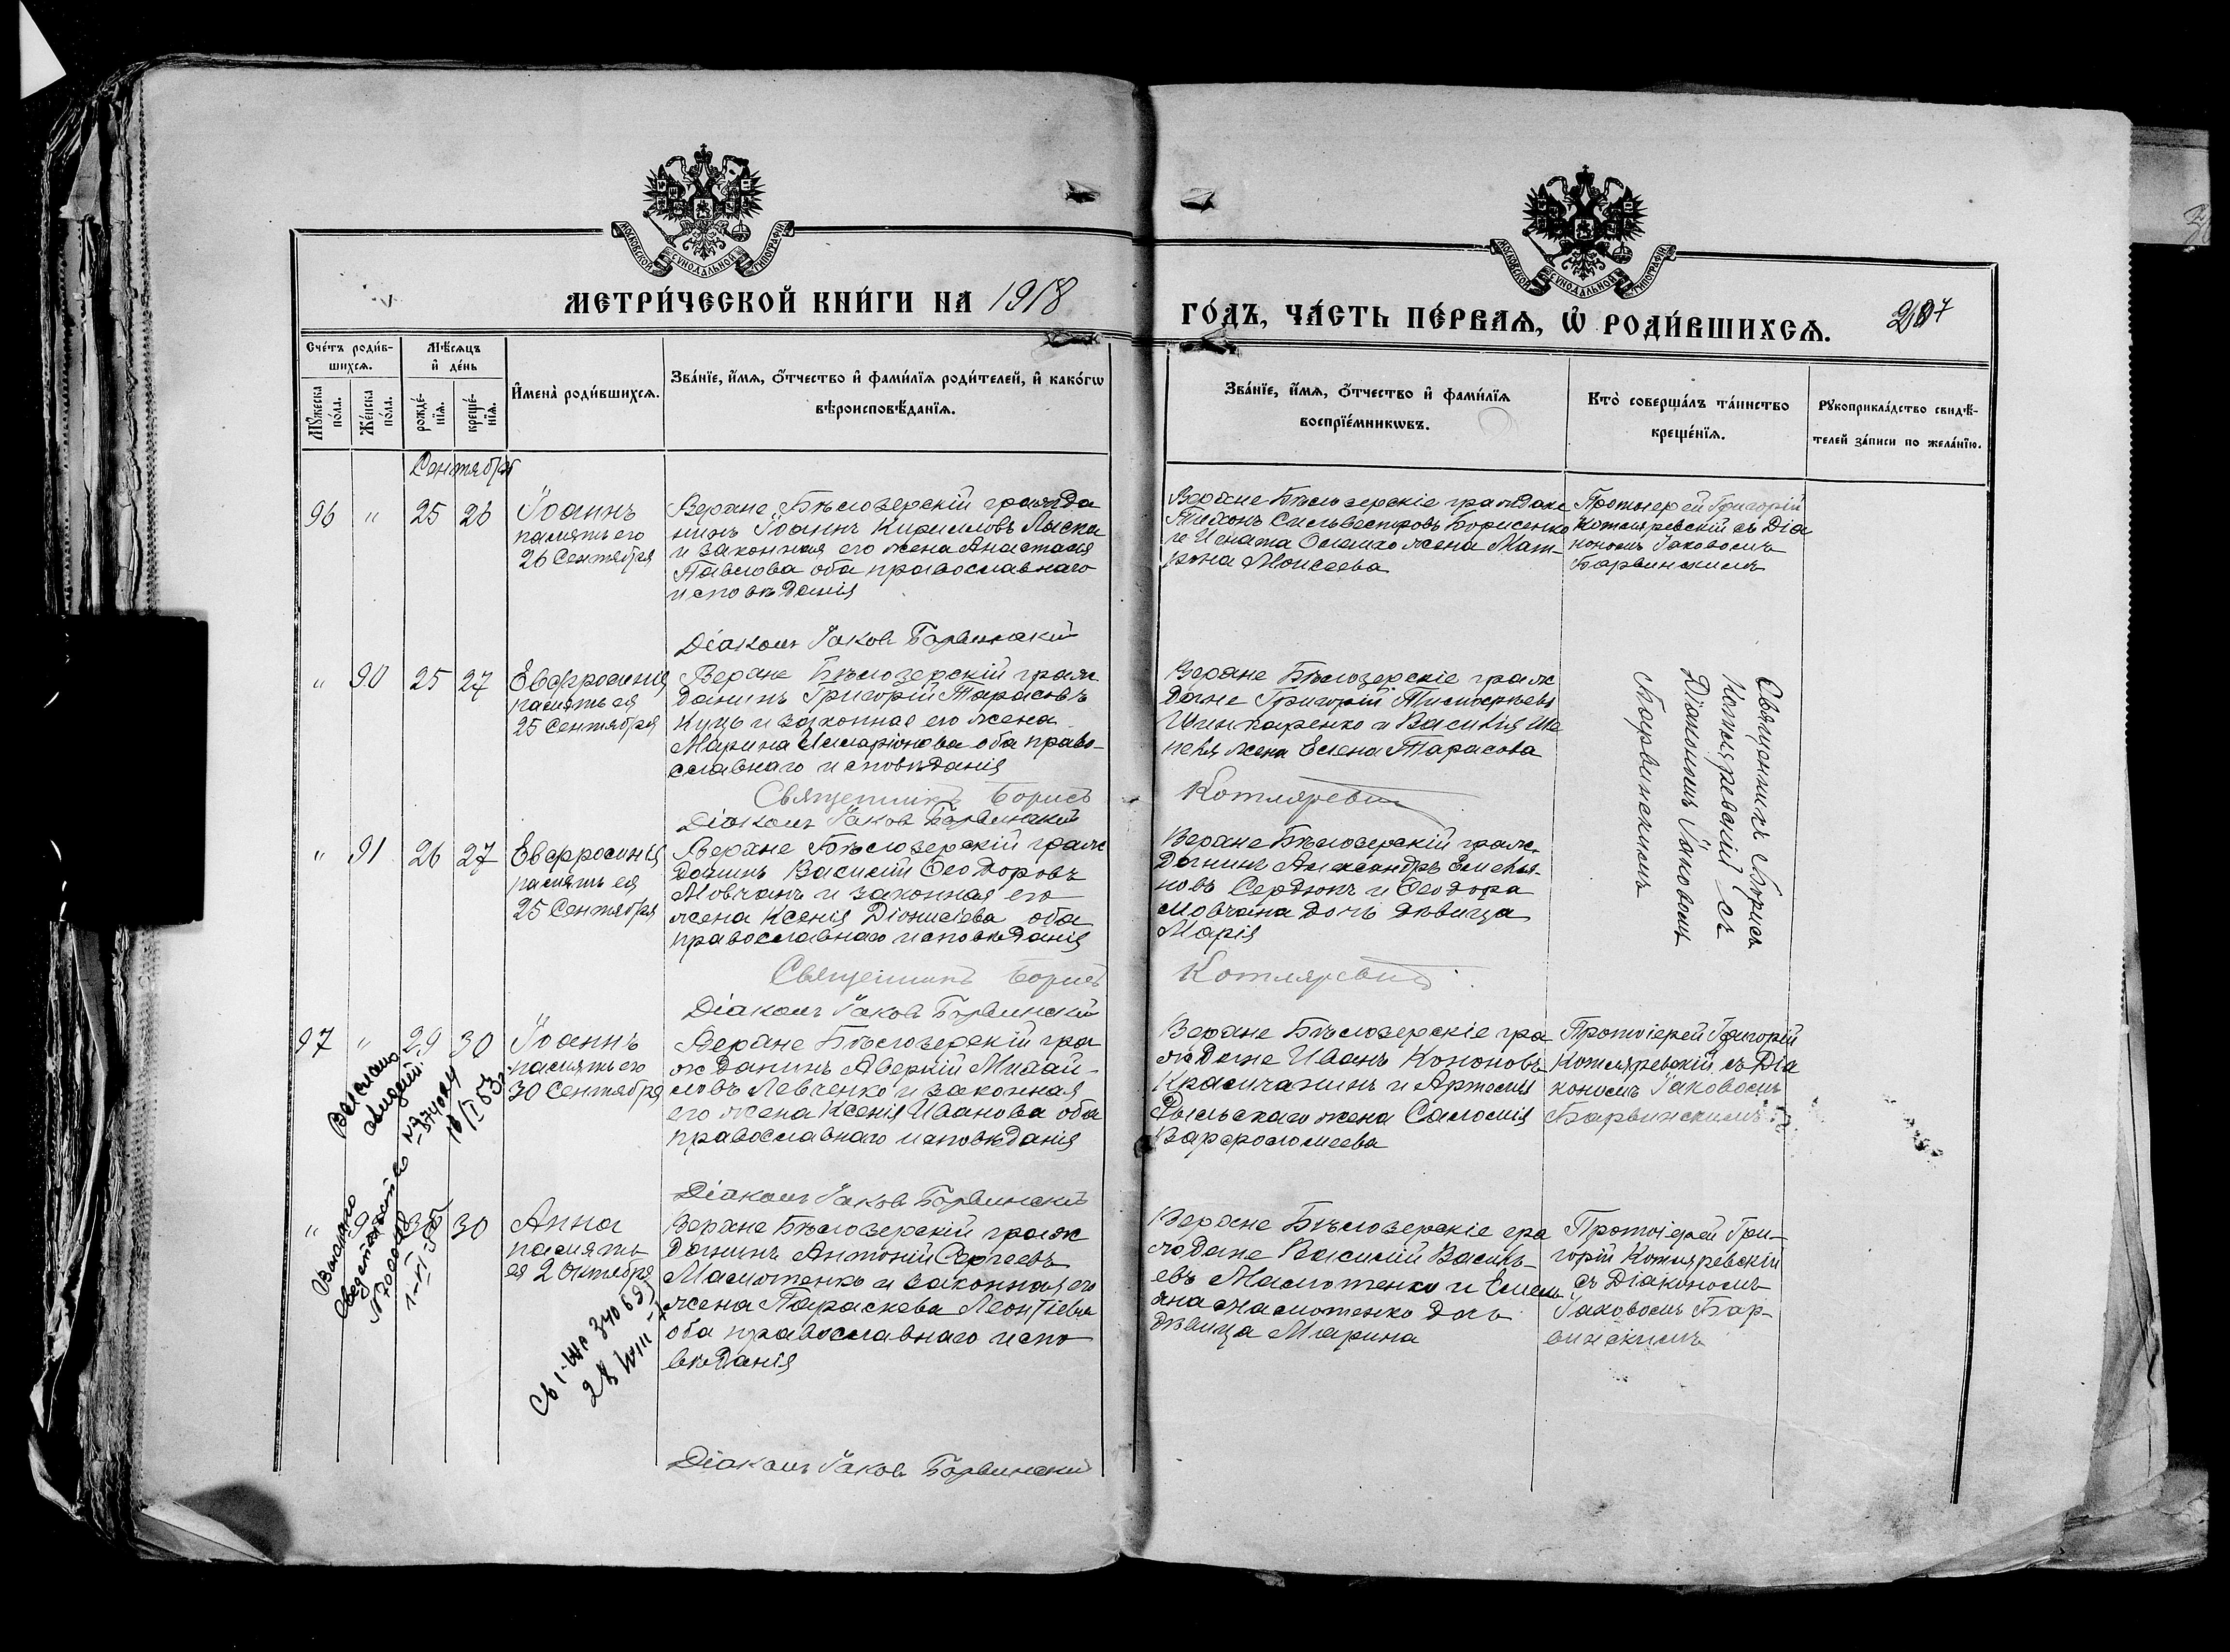 МОСКОВСКОЙ СѴНОДАЛЬНОЙ ТИПОГРАФІИ
МОСКОВСКОЙ СѴНОДАЛЬНОЙ ТИПОГРАФІИ
МЕТРИ́ЧЕСКОЙ КНИ́ГИ НА 1918
ГО́ДЪ, ЧА́СТЬ ПЕ́РВАѦ, Ѡ҆ РОДИ́ВШИХСѦ.
Сче́тъ роди́в-
шихсѧ.
Мꙋ́жеска
по́ла.
Же́нска
по́ла.
Мѣ́сѧцъ
и҆ де́нь
рожде́-
нїѧ.
креще́-
нїѧ.
И҆мена̀ роди́вшихсѧ.
Зва́нїе, и҆́мѧ, ѻ҆́тчество и҆ фами́лїѧ роди́телей, и҆ како́гѡ
вѣроисповѣ́данїѧ.
Зва́нїе, и҆́мѧ, ѻ҆́тчество и҆ фами́лїѧ
воспрїе́мникѡвъ.
Кто̀ соверша́лъ та́инство
креще́нїѧ.
Рꙋкоприкла́дство свидѣ́-
телей за́писи по жела́нїю.
Сентябрь
96 " 25 26
Іоаннъ
память его
26 Сентября
Верхне Бѣлозерскій гражда
нинъ Іоаннъ Кириловъ Ляска
и законная его жена Анастасія
Павлова оба православнаго
исповѣданія
Верхне Бѣлозерскіе граждане
Тихонъ Сильвестровъ Борисенко
и Игната жена Мат-
рона Моисеева
Протоіерей Григорій
Котляревскій съ Діа
кономъ Іаковомъ
Барвинскимъ
Діаконъ Іаковъ Барвинскій
" 90 25 27
Евфросинія
память ея
25 Сентября
Верхне Бѣлозерскій граж
данинъ Григорій Тарасовъ
Куцъ и законная его жена
Марина Иларіонова оба право-
славнаго исповѣданія
Верхне Бѣлозерскіе граж
дане Григорій Тимофеевъ
Шинкаренко и Василія Ше
пеля жена Елена Тарасова
Священникъ Борисъ
Котляревскій съ
Діакономъ Іаковомъ
Барвинскимъ
Священникъ Борисъ Котляревскій
Діаконъ Іаковъ Барвинскій
" 91 26 27
Евфросинія
память ея
25 Сентября
Верхне Бѣлозерскій граж
данинъ Василій Ѳеодоровъ
Мовчанъ и законная его
жена Ксенія Діонисіева оба
православнаго исповѣданія
Верхне Бѣлозерскій граж-
данинъ Александръ Емелья-
новъ Сердюкъ и Ѳеодора
Мовчана дочь дѣвица
Марія
Священникъ Борисъ Котляревскій
Діаконъ Іаковъ Барвинскій
97 " 29 30
Іоаннъ
память его
30 Сентября
Верхне Бѣлозерскій гра
жданинъ Аверкій Михай-
ловъ Левченко и законная
его жена Ксенія Иванова оба
православнаго исповѣданія
Верхне Бѣлозерскіе гра
ждане Иванъ Кононовъ
Крамчанинъ и Артемія
Рыльскаго жена Саломія
Варфоломеева
Протоіерей Григорій
Котляревскій съ Діа
кономъ Іаковомъ
Барвинскимъ
Діаконъ Іаковъ Барвинскій
" 30 30
Анна
память
ея 2 Октября
Верхне Бѣлозерскій граж
данинъ Антоній Сергеевъ
Малютенко и законная его
жена Параскева Леонтіева
оба православнаго испо
вѣданія
Верхне Бѣлозерскіе гра
ждане Василій Василь-
евъ Малютенко и Емель
яна Малютенко дочь
дѣвица Марина
Протоіерей Гри-
горій Котляревскій
съ Діакономъ
Іаковомъ Бар-
винскимъ
Діаконъ Іаковъ Барвинскій